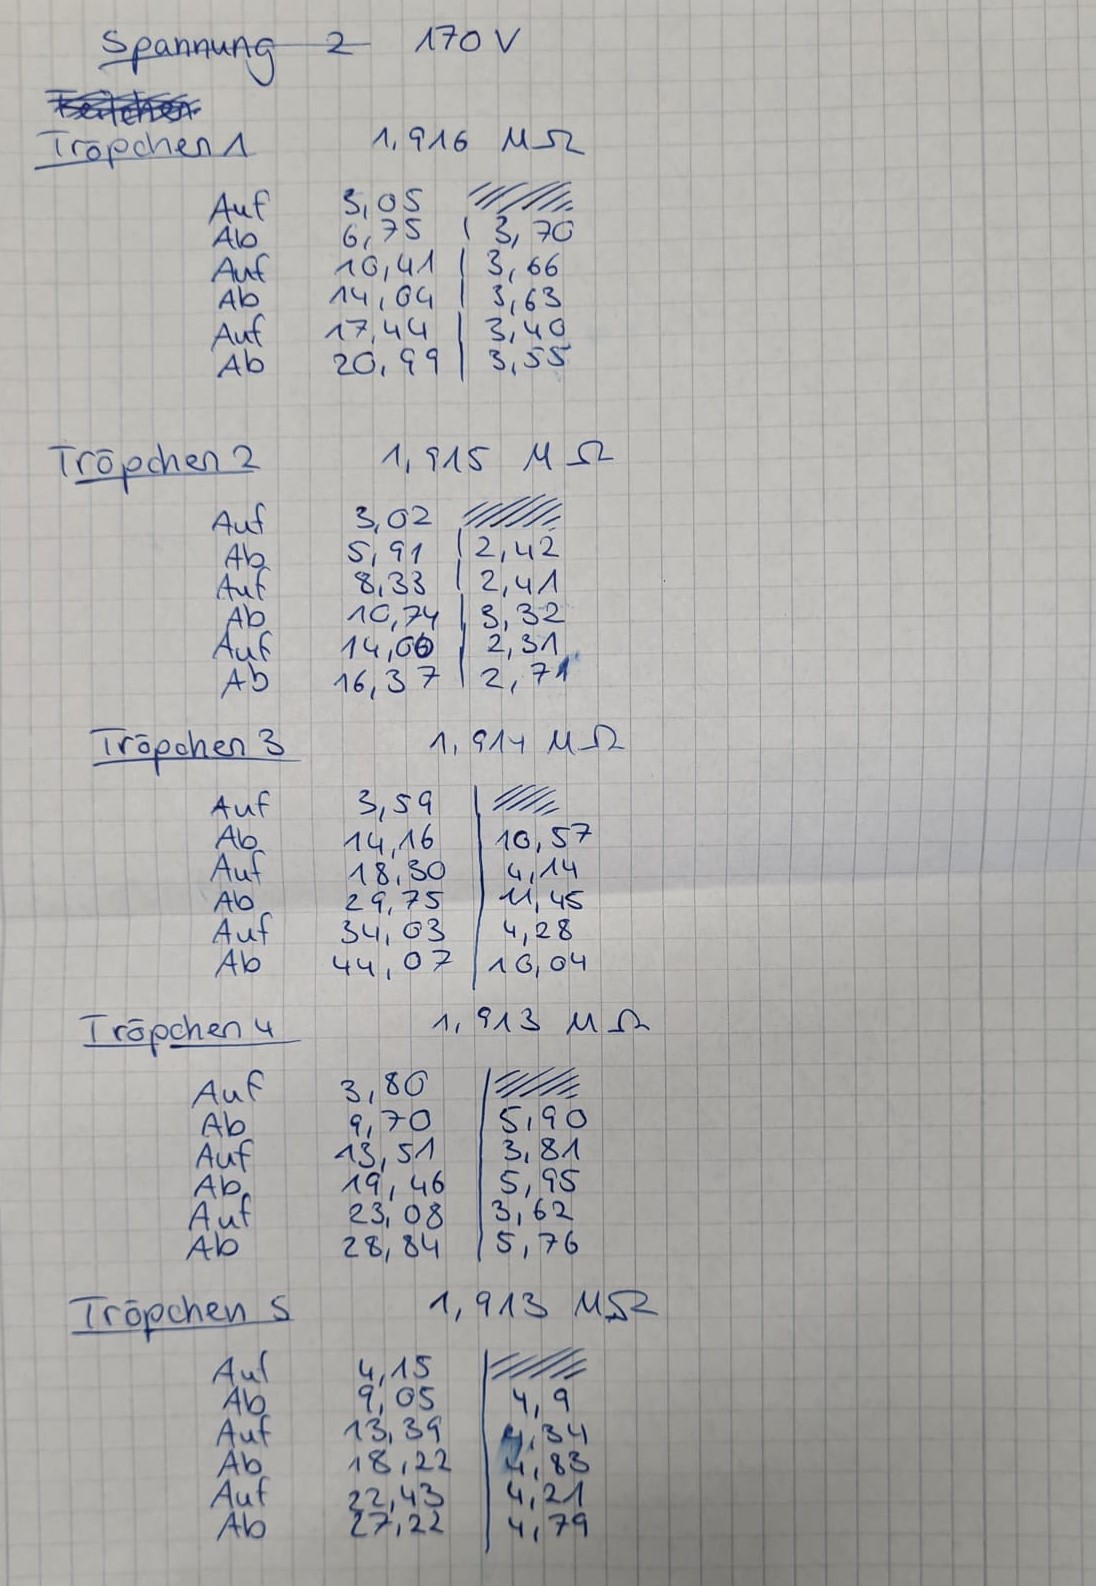 Spannung 2 170 V
Tröpchen 1 1,916 MΩ
Auf 3,05
Ab 6,75 | 3,70
Auf 10,41 | 3,66
Ab 14,04 | 3,63
Auf 17,44 | 3,40
Ab 20,99 | 3,55
Tröpchen 2 1,915 MΩ
Auf 3,02
Ab 5,91 | 2,42
Auf 8,33 | 2,41
Ab 10,74 | 3,32
Auf 14,06 | 2,31
Ab 16,37 | 2,71
Tröpchen 3 1,914 MΩ
Auf 3,59 |
Ab 14,16 | 10,57
Auf 18,30 | 4,14
Ab 29,75 | 11,45
Auf 34,03 | 4,28
Ab 44,07 | 10,04
Tröpchen 4 1,913 MΩ
Auf 3,80 |
Ab 9,70 | 5,90
Auf 13,51 | 3,81
Ab 19,46 | 5,95
Auf 23,08 | 3,62
Ab 28,84 | 5,76
Tröpchen 5 1,913 MΩ
Auf 4,15 |
Ab 9,05 | 4,9
Auf 13,39 | 4,34
Ab 18,22 | 4,83
Auf 22,43 | 4,21
Ab 27,22 | 4,79